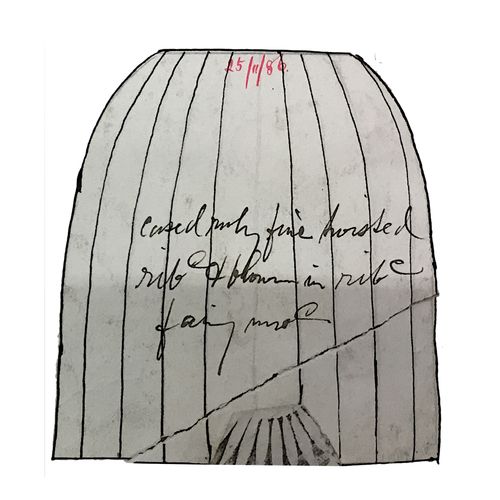 25/11/86.
cased ruby fine twisted
rib & blown in rib
fairy